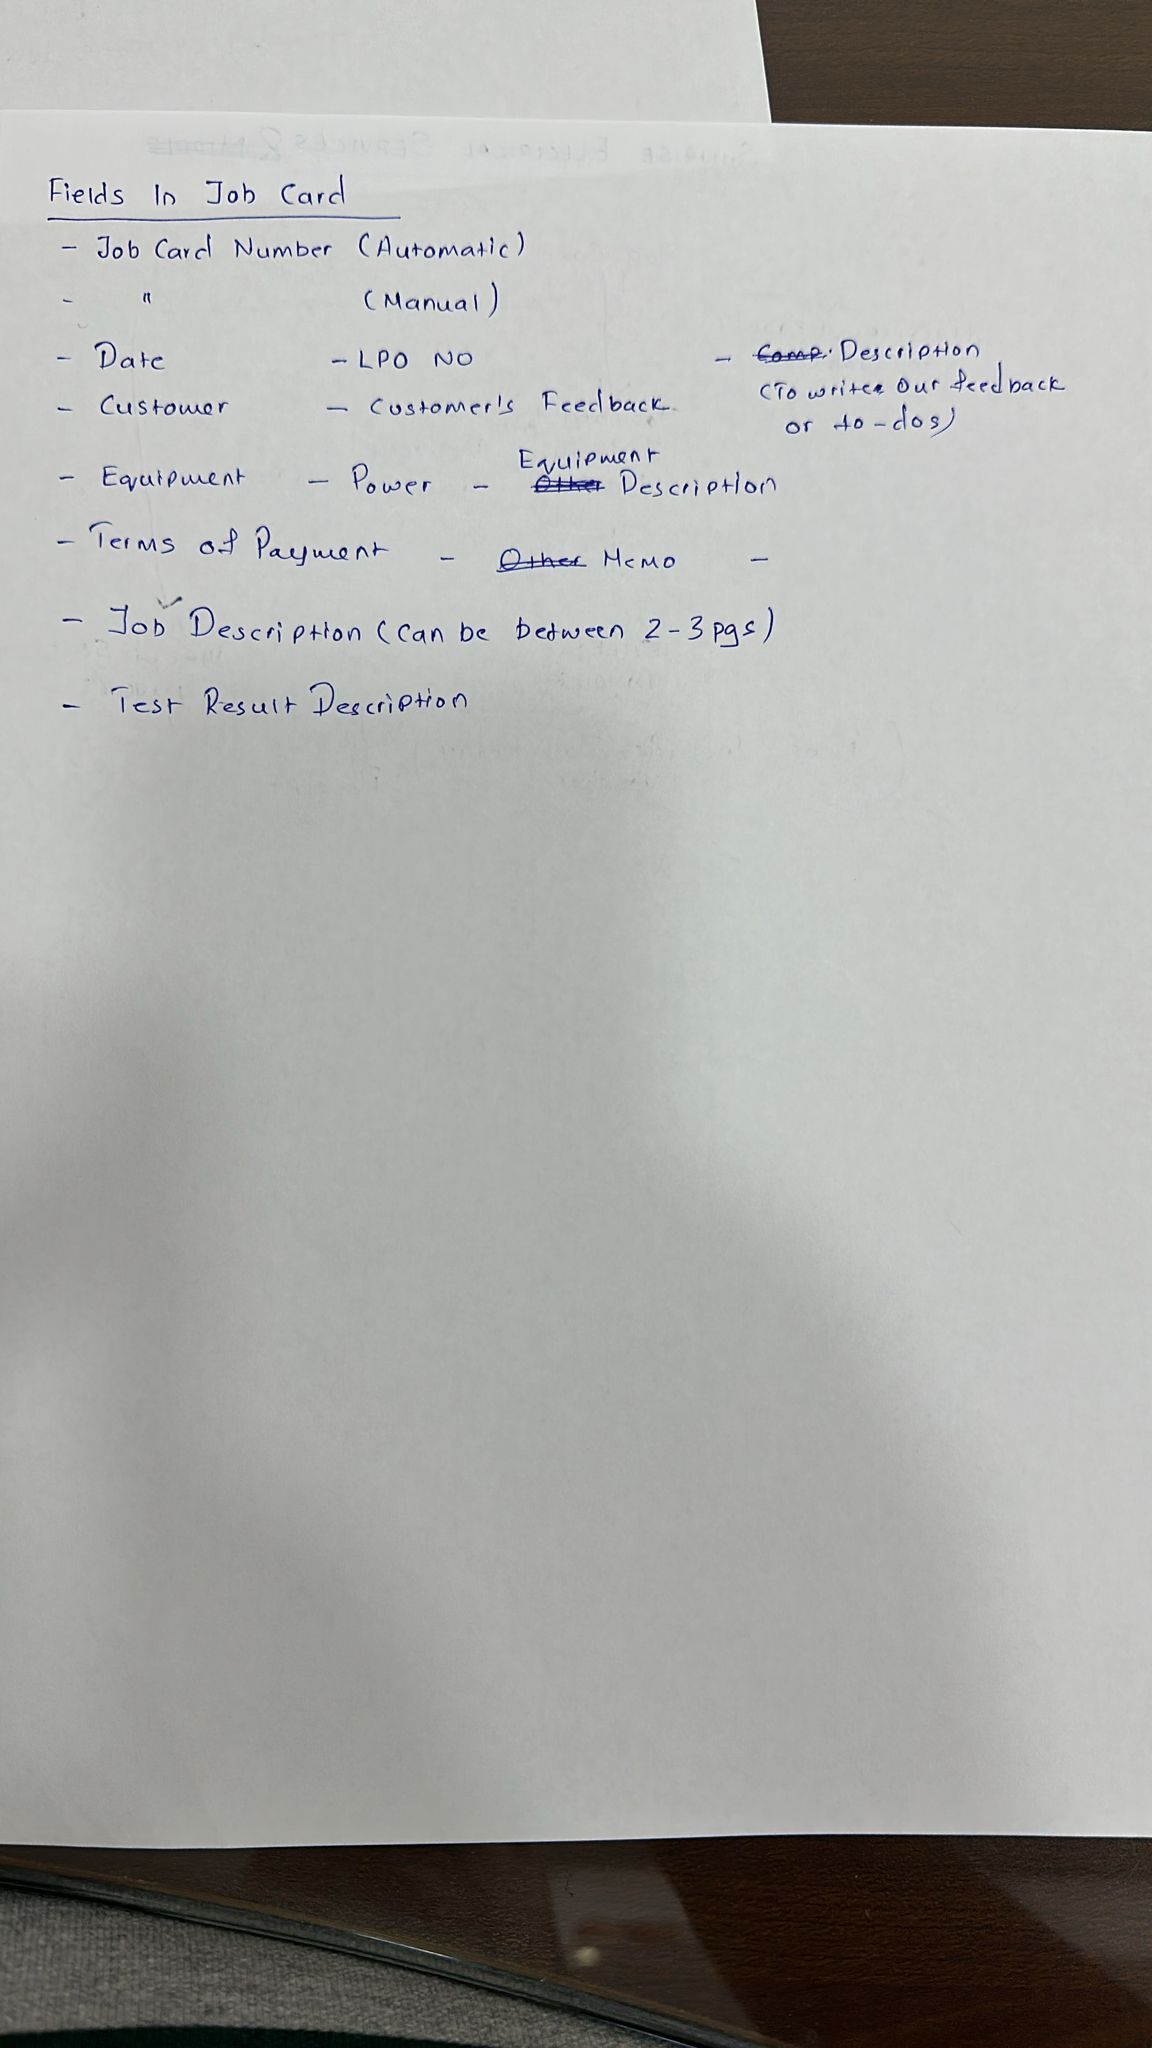 Fields In Job Card
- Job Card Number (Automatic)
- " (Manual)
- Date - LPO NO - Comp. Description
(To write our feedback
- Customer - Customer's Feedback.
or to-dos)
Equipment
- Equipment - Power - Other Description
- Terms of Payment - Other Memo -
- Job Description (can be between 2-3 pgs)
- Test Result Description